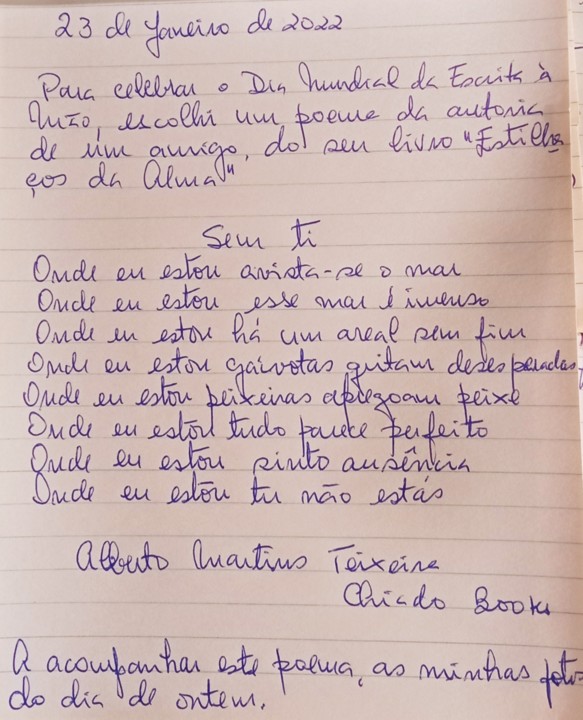 23 de Janeiro de 2022
Para celebrar o Dia Mundial da Escrita à
Mão, escolhi um poema da autoria
de um amigo, do seu livro "Estilha
ços da Alma"
Sem ti
Onde eu estou avista-se o mar
Onde eu estou esse mar é imenso
Onde eu estou há um areal sem fim
Onde eu estou gaivotas gritam desesperadas
Onde eu estou peixeiras apregoam peixe
Onde eu estou tudo parece perfeito
Onde eu estou sinto ausência
Onde eu estou tu não estás
Alberto Martins Teixeira
Chiado Books
A acompanhar este poema, as minhas fotos
do dia de ontem.